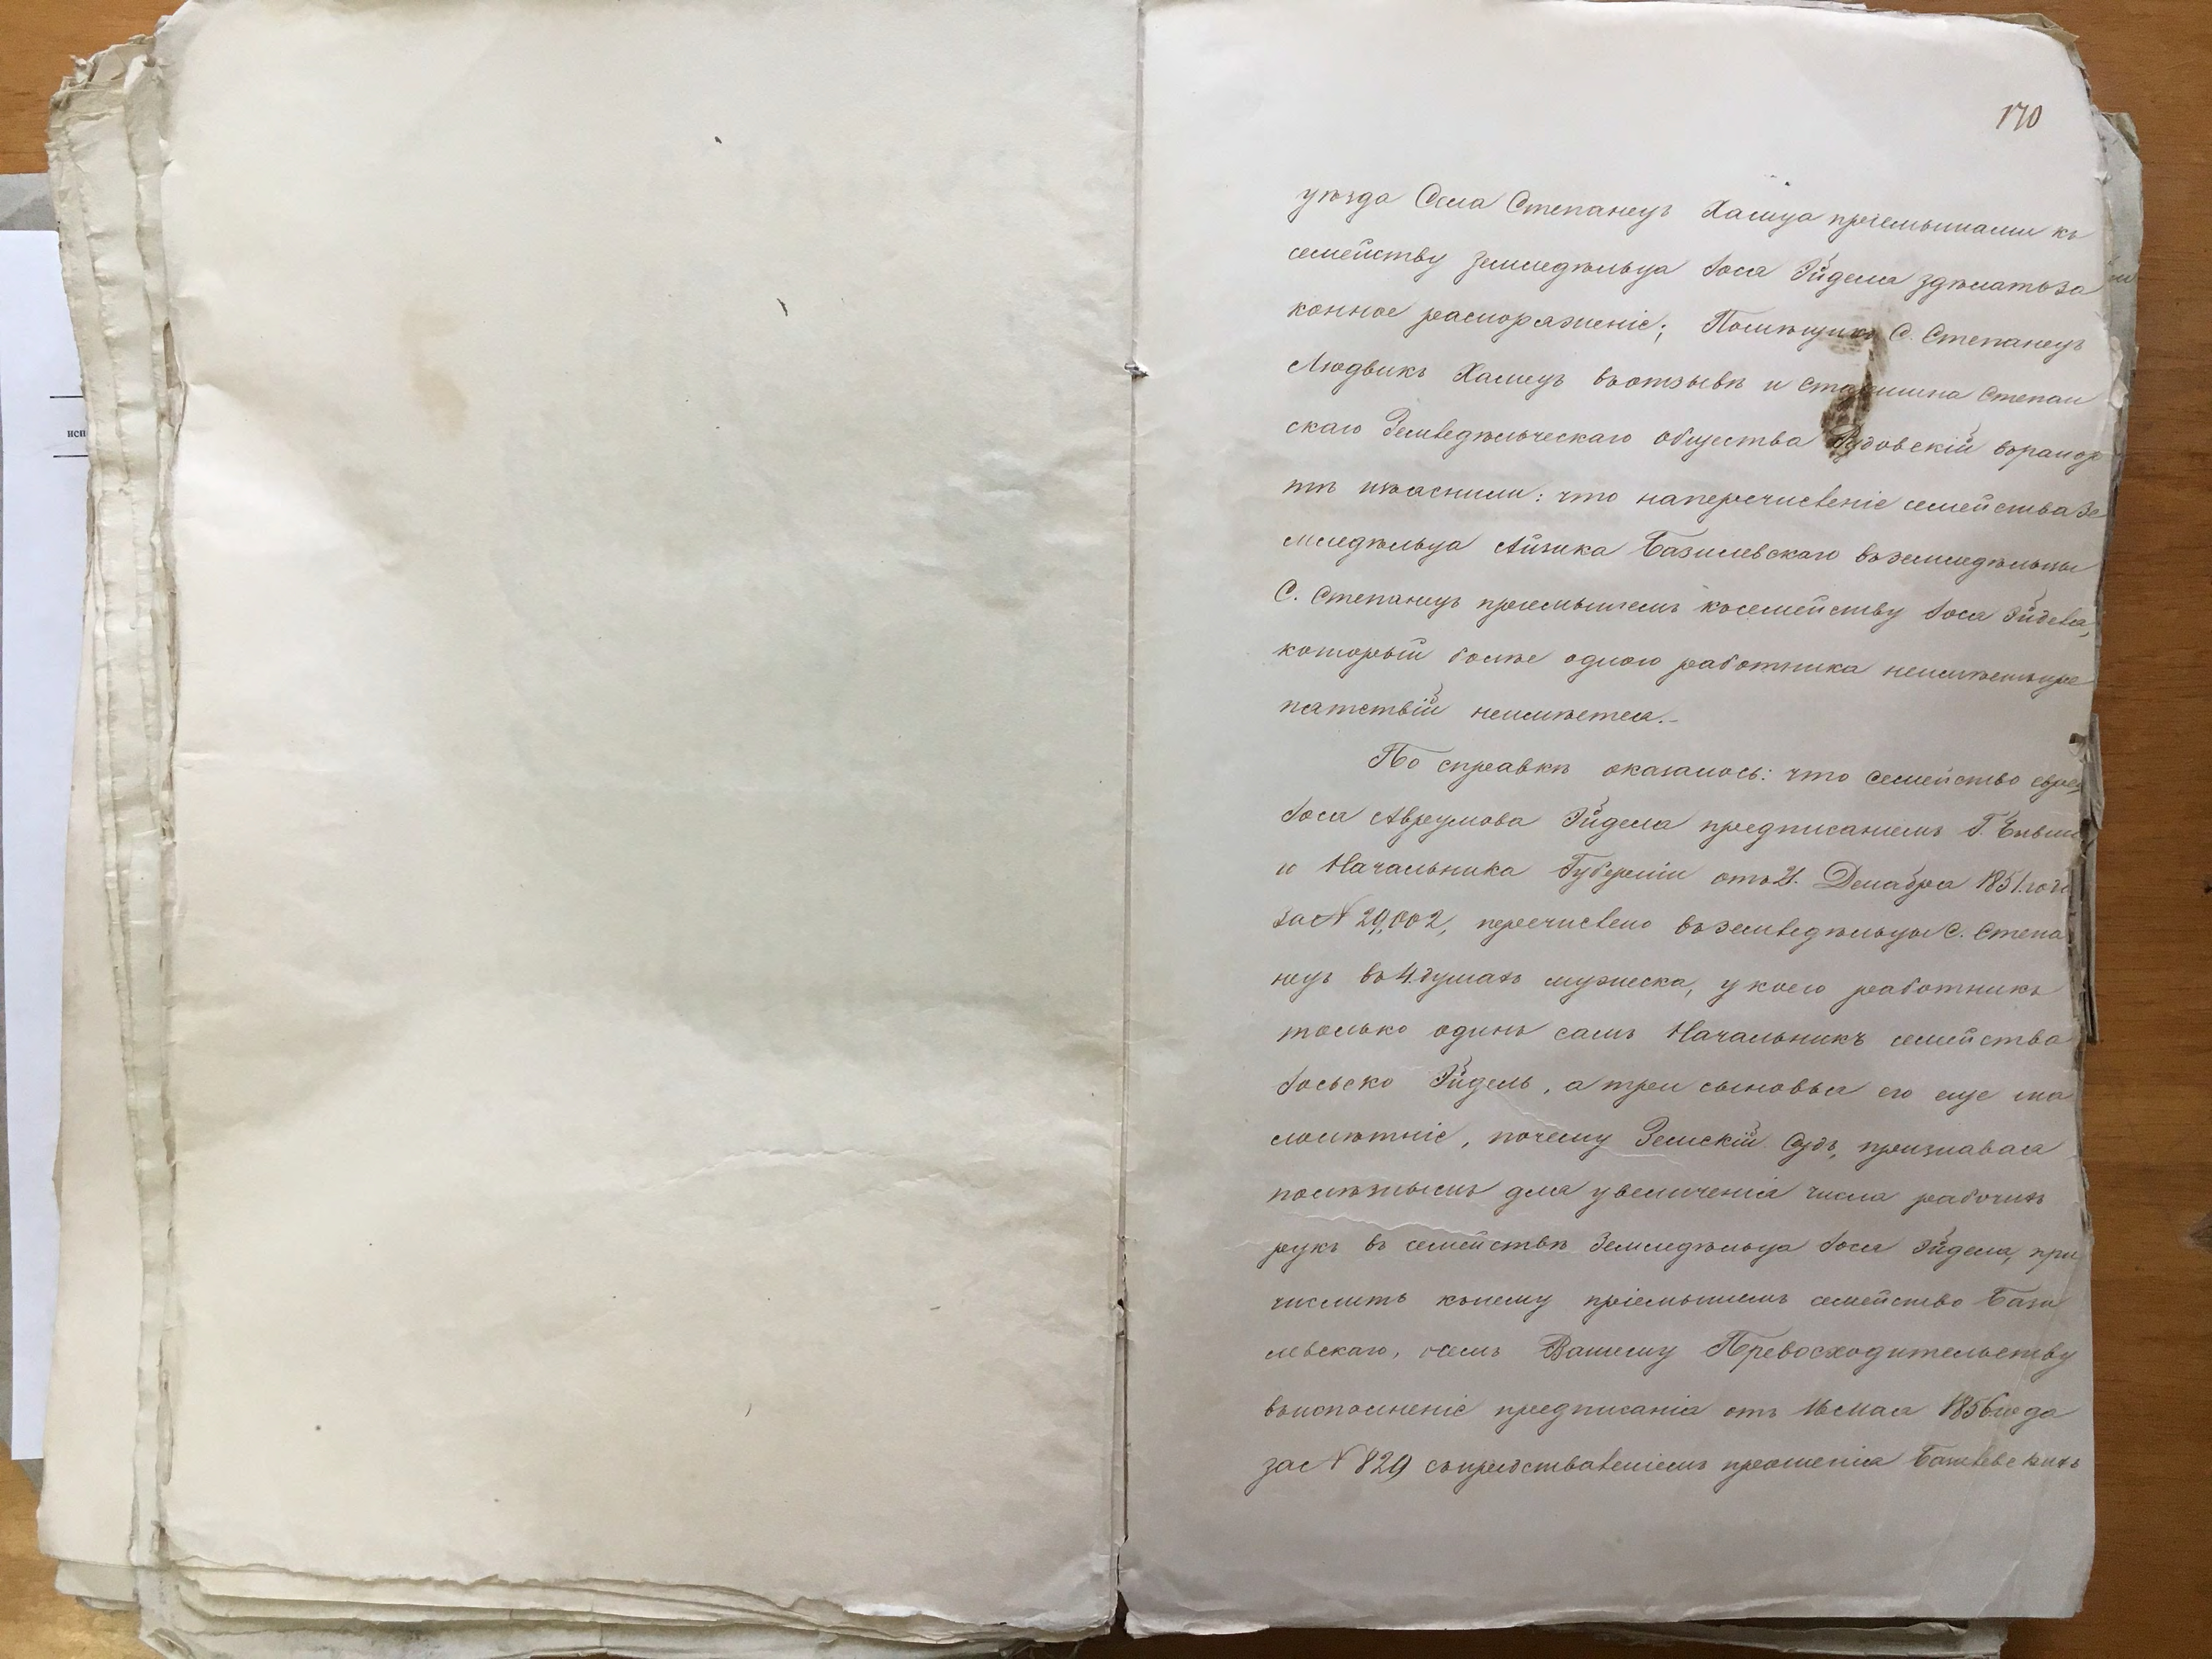 170
уѣзда Села Степанецъ Халеца пріемышами къ
семейству земледѣльца Іося Эйделя здѣлать за
конное распоряженіе; Помѣщикъ С. Степанецъ
Людвикъ Халецъ въотзывѣ и старшина Степан
скаго Земледѣльческаго общества върапор
тѣ изъяснили: что наперечисленіе семейства Зе
мледѣльца Айзика Базилевскаго въземледѣльцы
С. Степанецъ пріемышемъ късемейству Іося Эйделя,
который болѣе одного работника неимѣетъ пре
пятствій неимѣется.
По справкѣ оказалось: что семейство еврея
Іося Аврумова Эйделя предписаніемъ Г. Бывша
го Начальника Губерніи отъ 21. Декабря 1851. года
за № 29,002, перечислено въземледѣльцы С. Степа
нецъ въ 4. душахъ мужеска, у коего работникъ
только одинъ самъ Начальникъ семейства
Іосько Эйдель, а три сыновья его еще ма
лолѣтніе, почему Земскій Судъ, признавая
полѣзнымъ для увеличенія числа рабочихъ
рукъ въ семействѣ Земледѣльца Іося Эйделя, при
числить кънему пріемышемъ семейство Бази
левскаго, Вашему Превосходительству
въисполненіе предписанія отъ 16 Мая 1856 года
за № 829 съпредставленіемъ прошенія Базилевскихъ
нсп